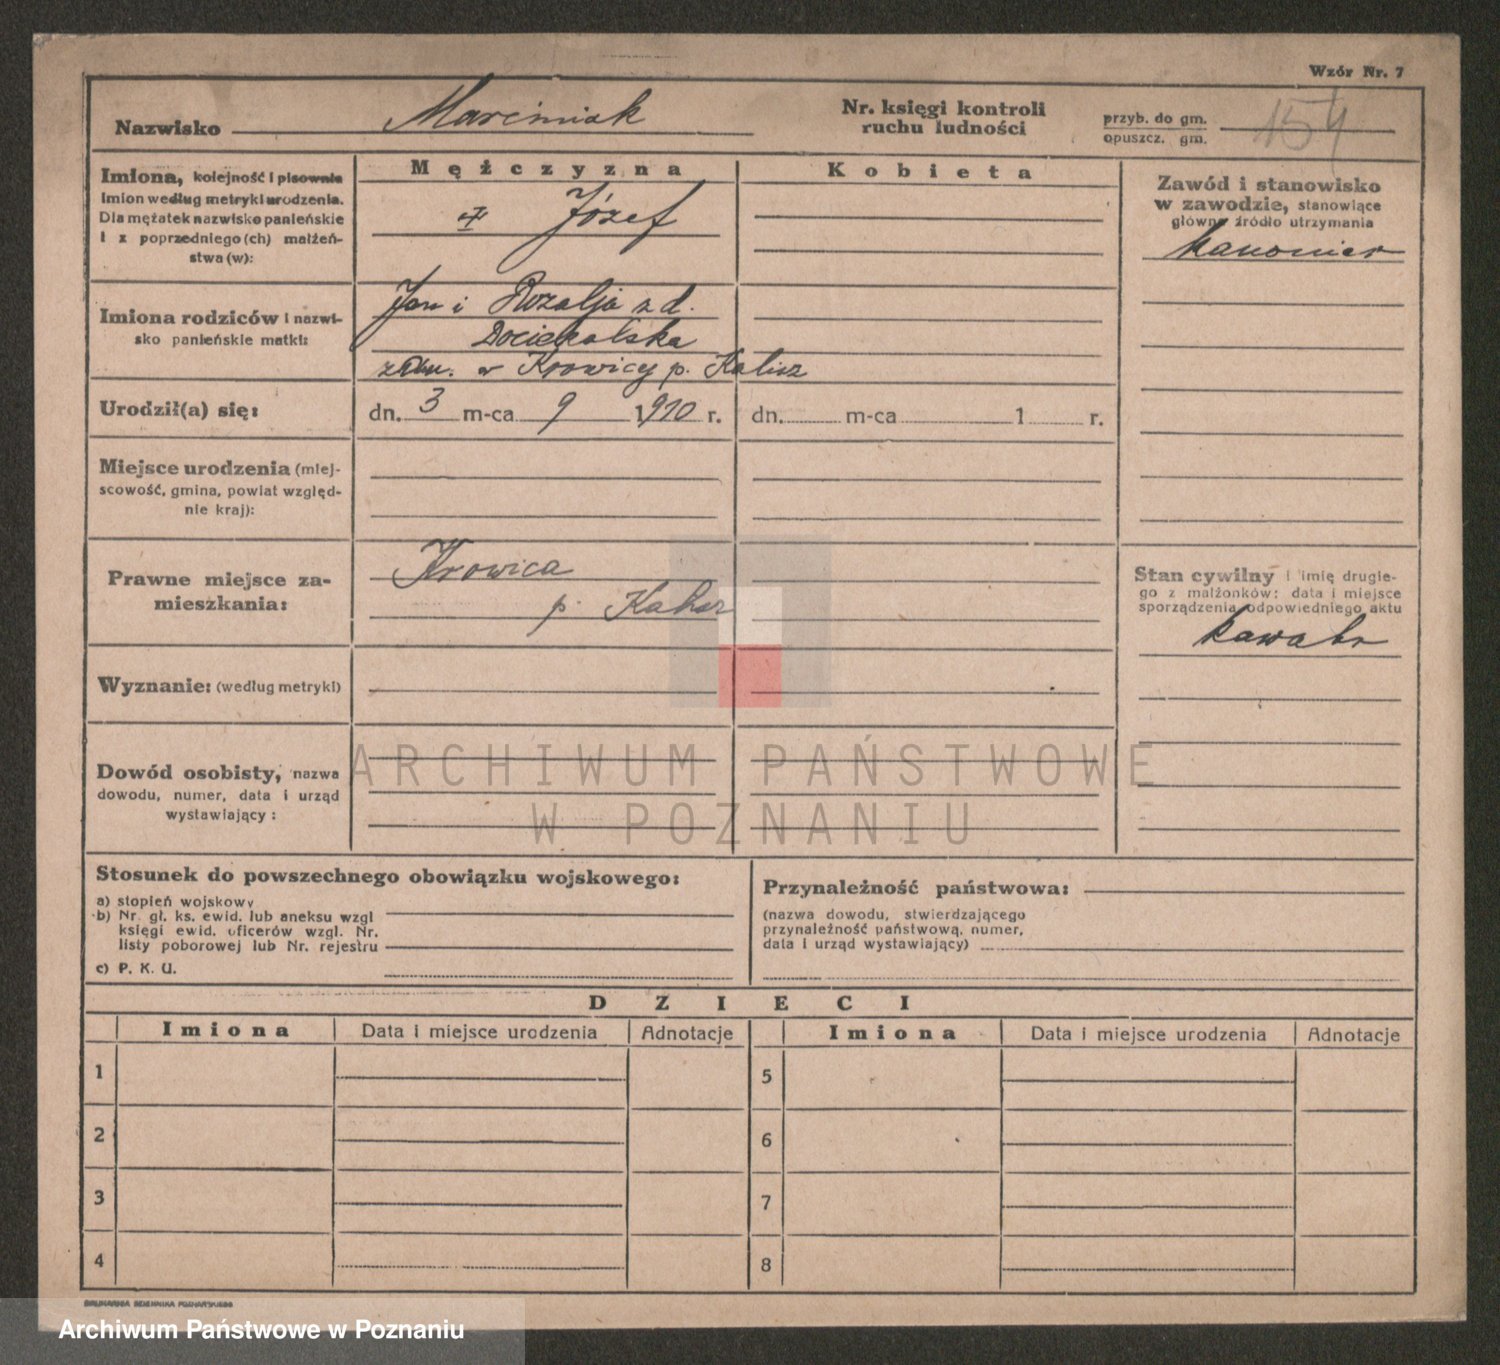 Wzór Nr. 7
Nazwisko Marciniak
Nr. księgi kontroli
ruchu ludności
przyb. do gm.
opuszcz. gm.
154
Mężczyzna
Kobieta
Imiona, kolejność i pisownia
imion według metryki urodzenia.
Dla mężatek nazwisko panieńskie
i z poprzedniego (ch) małżeń-
stwa (w):
Józef
Zawód i stanowisko
w zawodzie, stanowiące
główne źródło utrzymania
kanonier
Imiona rodziców i nazwi-
sko panieńskie matki:
Jan i Rozalja z d.
Dociekalska
zam. w Krowicy p. Kalisz
Urodził(a) się:
dn. 3 m-ca 9 1910 r.
dn. m-ca 1 r.
Miejsce urodzenia (miej-
scowość, gmina, powiat względ-
nie kraj):
Prawne miejsce za-
mieszkania:
Krowica
p. Kalisz
Stan cywilny i imię drugie-
go z małżonków: data i miejsce
sporządzenia odpowiedniego aktu
kawaler
Wyznanie: (według metryki)
Dowód osobisty, nazwa
dowodu, numer, data i urząd
wystawiający :
ARCHIWUM PAŃSTWOWE
W POZNANIU
Stosunek do powszechnego obowiązku wojskowego:
a) stopień wojskowy
b) Nr. gł. ks. ewid. lub aneksu wzgl
księgi ewid. oficerów wzgl. Nr.
listy poborowej lub Nr. rejestru
c) P. K. U.
Przynależność państwowa:
(nazwa dowodu, stwierdzającego
przynależność państwową, numer,
data i urząd wystawiający)
DZIECI
Imiona Data i miejsce urodzenia Adnotacje Imiona Data i miejsce urodzenia Adnotacje
1 5
2 6
3 7
4 8
DRUKARNIA DZIENNIKA POZNAŃSKIEGO
Archiwum Państwowe w Poznaniu